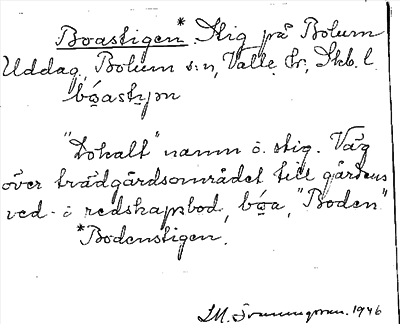 Boastigen*. Stig på Bolum
Uddag, Bolum s:n, Valle hr, Skb. l.
bóastıɲn
"Lokalt" namn å stig. Väg
över trädgårdsområdet till gårdens
ved- o redskapsbod, bóa, "Boden"
*Bodenstigen.
1946